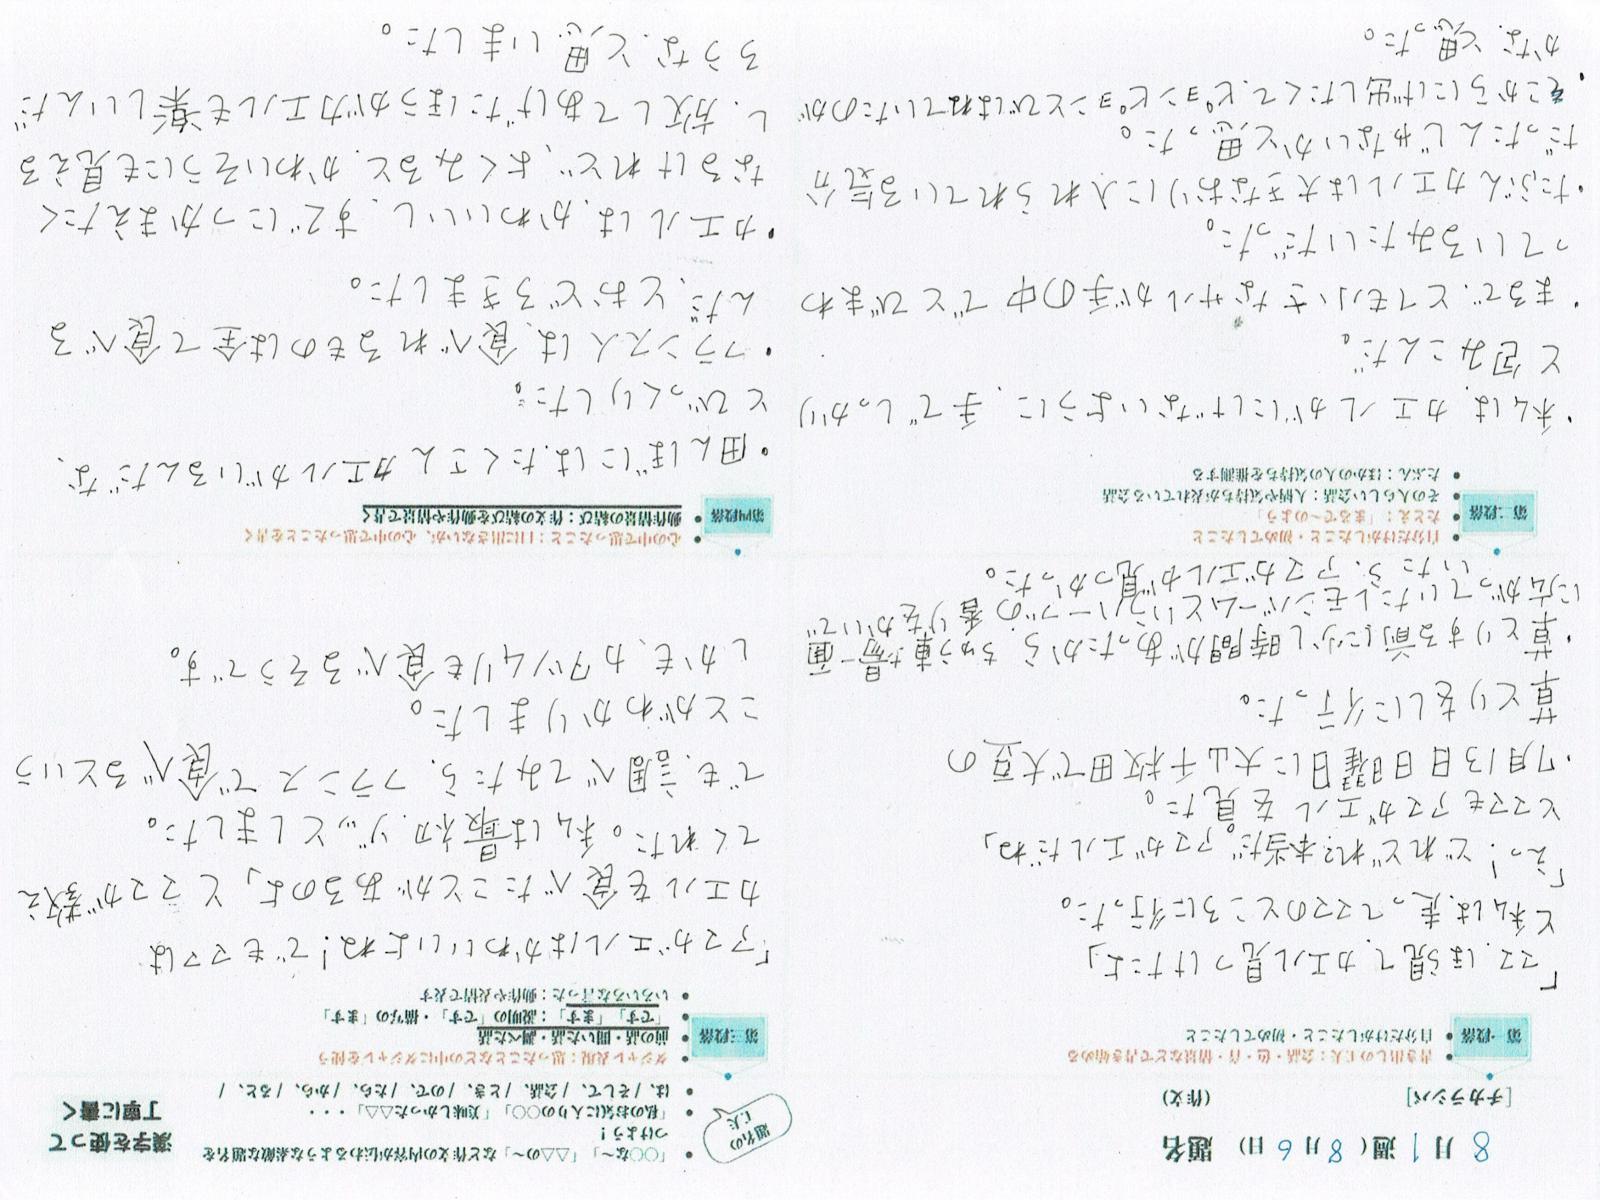 8月1週(8月6日) 題名
[チカラシバ] (作文)
第一段落
書き出しの工夫：会話・色・音・情景などで書き始める
自分だけがしたこと・初めてしたこと
「ママ、ほら見て、カエル見つけたよ」
と私は、走ってママのところに行った。
「えっ！どれどれ？本当だ。アマガエルだね」
とママもアマガエルを見た。
・7月13日日曜日に大山千枚田で大豆の
草とりをしに行った。
・草とりする前に少し時間があったから、ちゅう車場一面
に広がっていたレモンバームというハーブの、香りをかいで
いたら、アマガエルが見つかった。
第二段落
自分だけがしたこと・初めてしたこと
たとえ：「まるで〜のよう」
その人らしい会話：人柄や気持ちが表れている会話
たぶん：ほかの人の気持ちを推測する
・私は、カエルがにげないように、手でしっかり
と包みこんだ。
・まるで、とても小さなサルが手の中でとびまわ
っているみたいだった。
・たぶんカエルは大きなおりに入れられている気分
だったんじゃないかと思った。
・そこからにげ出したくて、ピョンピョンとびはねていたのか
かな、と思った。
題名の工夫
「○○な〜」「△△の〜」など作文の内容が伝わるような素敵な題名を
つけよう！
「私のお気に入りの○○」「美味しかった△△」・・・
は、/そして、/会話、/とき、/ので、/たら、/から、/ると、/
漢字を使って
丁寧に書く
第三段落
ダジャレ表現：思ったことなどの中にダジャレを使う
前の話・聞いた話・調べた話
「です」「ます」：説明の「です」・描写の「ます」
いろいろな言った：動作や表情で表す
「アマガエルはかわいいよね！でもママは
カエルを食べたことがあるのよ」とママが教え
てくれた。私は最初、ゾッとしました。
でも、調べてみたら、フランスで食べるという
ことがわかりました。
しかも、カタツムリも食べるそうです。
第四段落
心の中で思ったこと：口に出さないが、心の中で思ったことを書く
動作情景の結び：作文の結びを動作や情景で書く
・田んぼには、たくさんカエルがいるんだな、
とびっくりした。
・フランス人は、食べれるものは全て食べる
んだ、とおどろきました。
・カエルは、かわいいし、すぐにつかまえたく
なるけれど、よくみると、かわいそうにも見える
し、放してあげたほうがカエルも楽しいんだ
ろうな、と思いました。